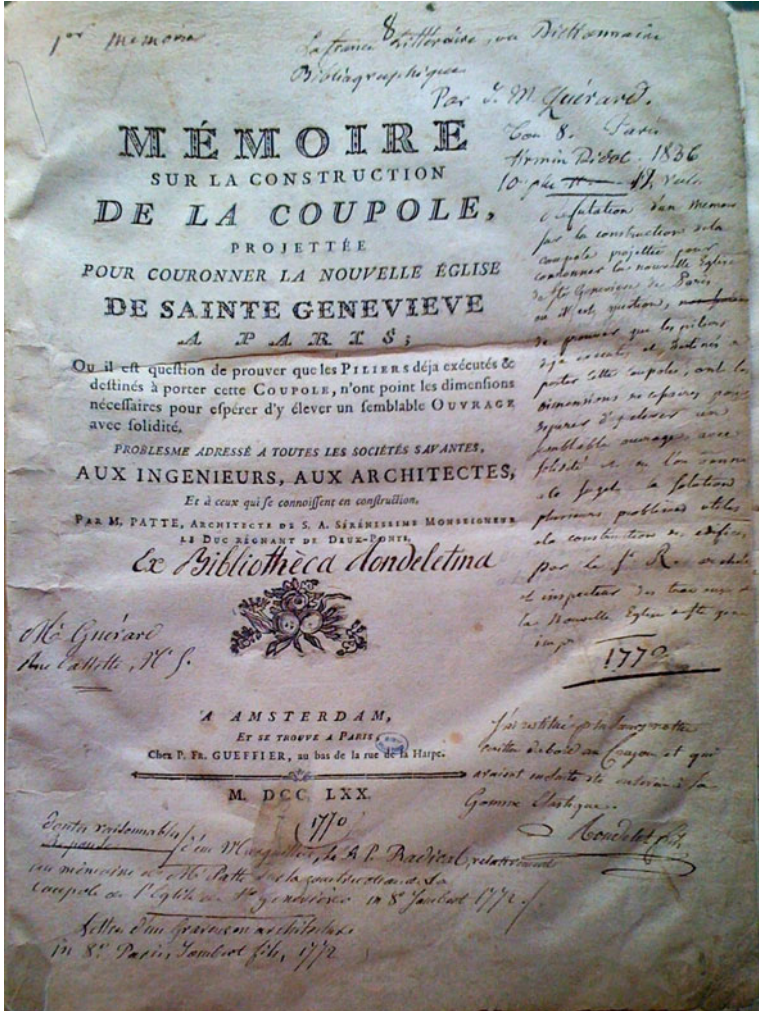 1er Memoire
8
La france Littéraire, ou Dictionnaire
Bibliographique
Par J. M. Quérard.
Tom 8. Paris
firmin Didot. 1836
MÉMOIRE
SUR LA CONSTRUCTION
DE LA COUPOLE,
PROJETTÉE
POUR COURONNER LA NOUVELLE ÉGLISE
DE SAINTE GENEVIEVE
A PARIS;
Ou il est question de prouver que les PILIERS déja exécutés &
destinés à porter cette COUPOLE, n'ont point les dimensions
nécessaires pour espérer d'y élever un semblable OUVRAGE
avec solidité.
PROBLESME ADRESSÉ A TOUTES LES SOCIÉTÉS SAVANTES,
AUX INGENIEURS, AUX ARCHITECTES,
Et à ceux qui se connoissent en construction.
PAR M. PATTE, ARCHITECTE DE S. A. SÉRÉNISSIME MONSEIGNEUR
LE DUC RÉGNANT DE DEUX-PONTS.
Ex Bibliothèca Rondeletina
réfutation d'un memoire
sur la construction de la
coupole projettée pour
couronner la nouvelle Eglise
de Ste Genevieve de Paris
où il est question,
de prouver que les piliers
déja executés et destinés a
porter cette coupole, ont les
dimensions necessaires pour
esperer d'y elever un
semblable ouvrage avec
solidité et ou l'on donne
a ce sujet la solution
plusieurs problemes utiles
a la construction des edifices
par le Sr R. architecte
et inspecteur des travaux de
la Nouvelle Eglise Ste gene
1772
Mr Guérard
Rue
A AMSTERDAM,
ET SE TROUVE A PARIS,
Chez P. FR. GUEFFIER, au bas de la rue de la Harpe.
M. DCC. LXX.
1770
J'ai restitué
écrites d'abord au Crayon et qui
avaient ensuite été enlevées à la
Gomme Elastique.
Rondelet
Doutes raisonnables
d'un Marguillier, de A P. Radical, relativement
au mémoire de Mr Patte sur la construction de la
coupole de l'Eglise de Ste Geneviève in 8° Jombert 1772
Lettre d'un Graveur en architecture
in 8° Paris, Jombert fils, 1772